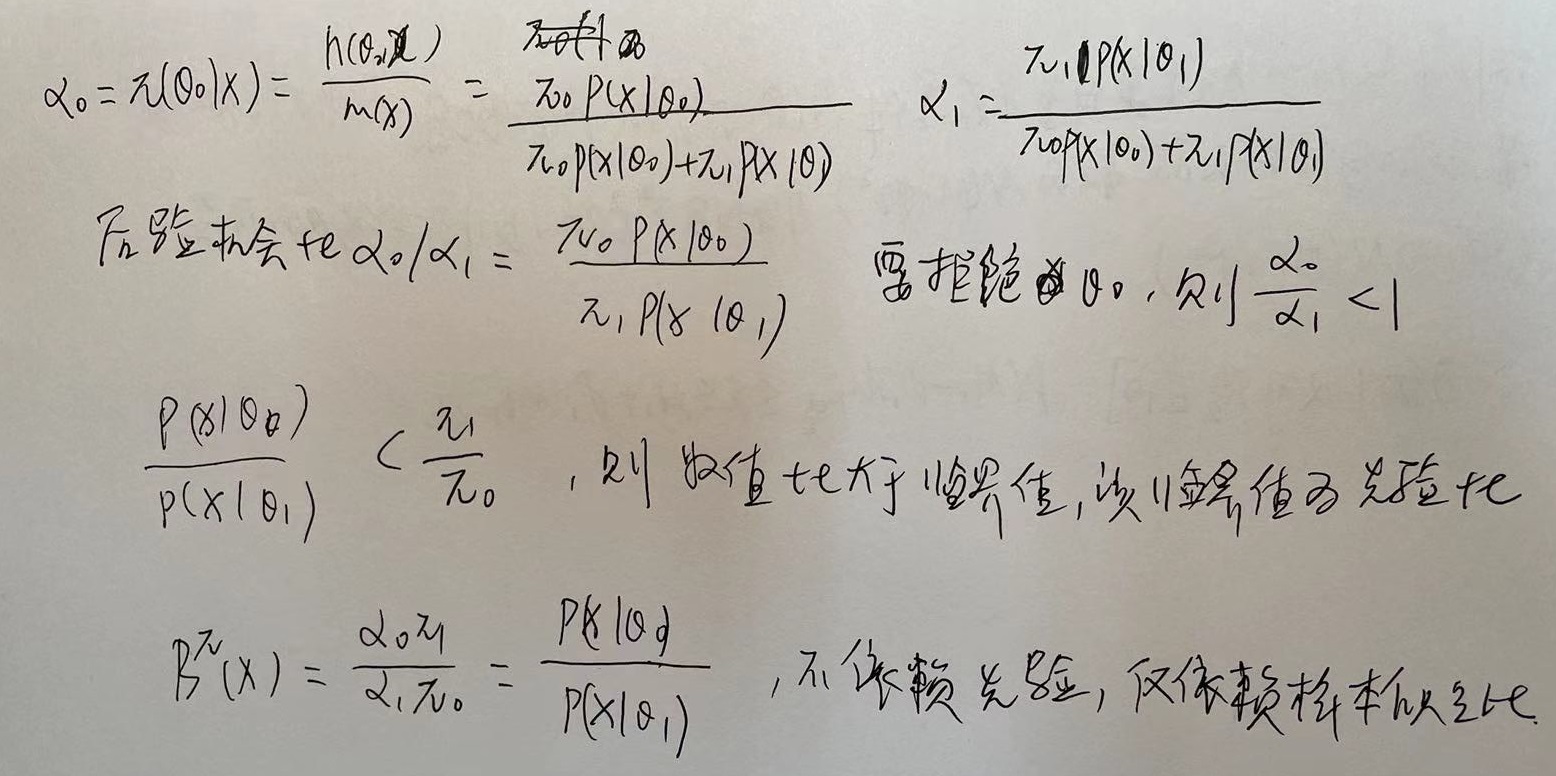 α₀ = π(θ₀|x) = h(θ₀,x) / m(x) = π₀ P(x|θ₀) / (π₀p(x|θ₀)+π₁p(x|θ₁)) α₁ = π₁P(x|θ₁) / (π₀p(x|θ₀)+π₁p(x|θ₁))
后验机会比 α₀/α₁ = π₀ P(x|θ₀) / (π₁ P(x|θ₁)) 要拒绝 θ₀, 则 α₀/α₁ < 1
P(x|θ₀) / p(x|θ₁) < π₁/π₀ , 则 数值比大于临界值,该临界值为先验比
B^π(x) = α₀π₁ / (α₁π₀) = P(x|θ₀) / P(x|θ₁) , 不依赖先验, 仅依赖样本似然比.